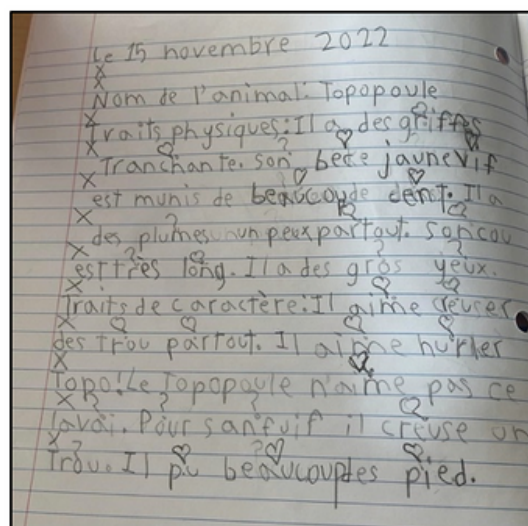 Le 15 novembre 2022
Nom de l'animal: Topopoule
Traits physiques: Il a des griffes
Tranchante. son becte jaune vif
est munis de beaucoude denct. Il a
des plumes un peux partout. son cou
est très long. Il a des gros yeux.
Traits de caractère: Il aime creuser
des trou partout. Il aime hurler
Topo! Le Topopoule n'aime pas ce
lavai. Pour sanfuif il creuse un
Trou. Il pu beaucouptes pied.